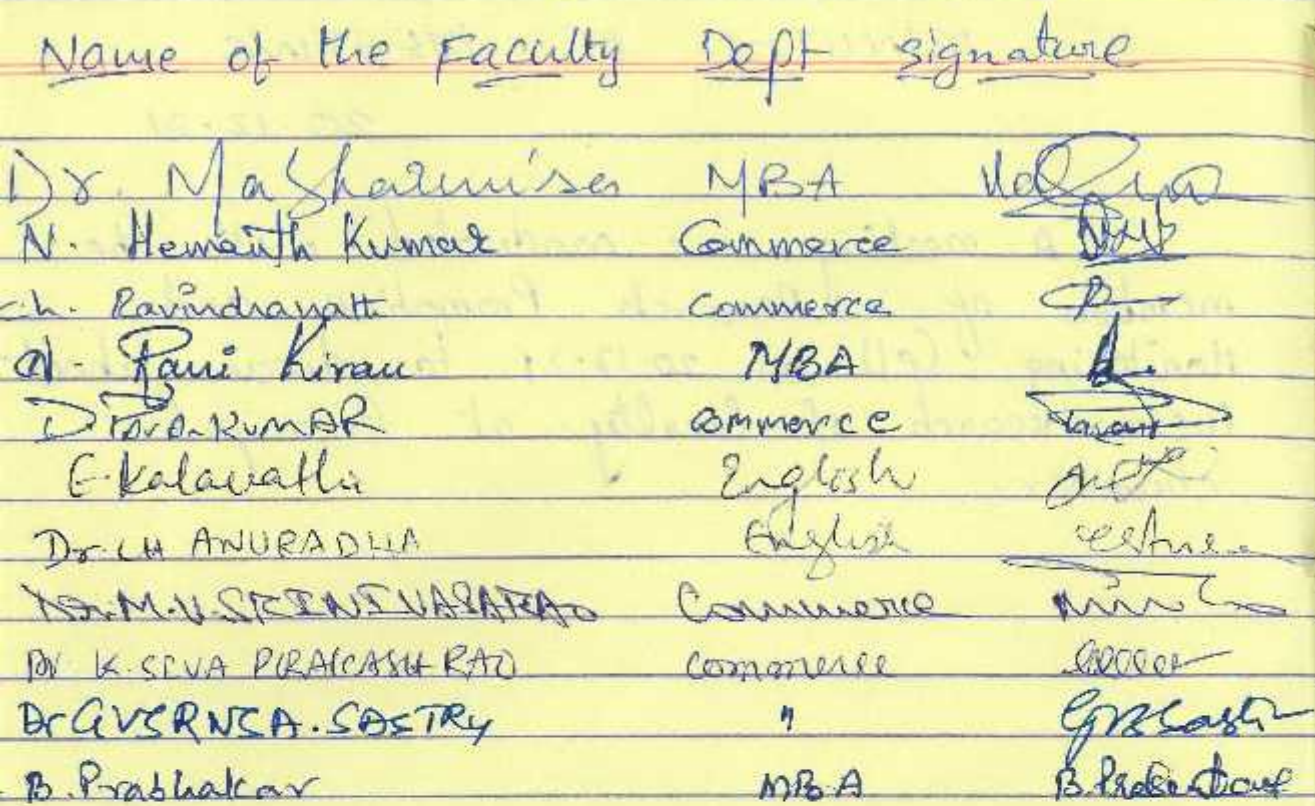 Name of the Faculty Dept signature
Dr. Mashalunisa MBA
N. Hemanth Kumar Commerce NHK
Ch. Ravindranath Commerce
N. Rani Kiran MBA
D KUMAR Commerce
E. Kalavathi English
Dr. CH ANURADHA English
Dr. M.V. SRINIVASARAO Commerce
Dr K. SIVA PRAKASH RAO Commerce
Dr GVSRNSA. SASTRY " GVSSastry
B. Prabhakar MBA B. Prabhakar